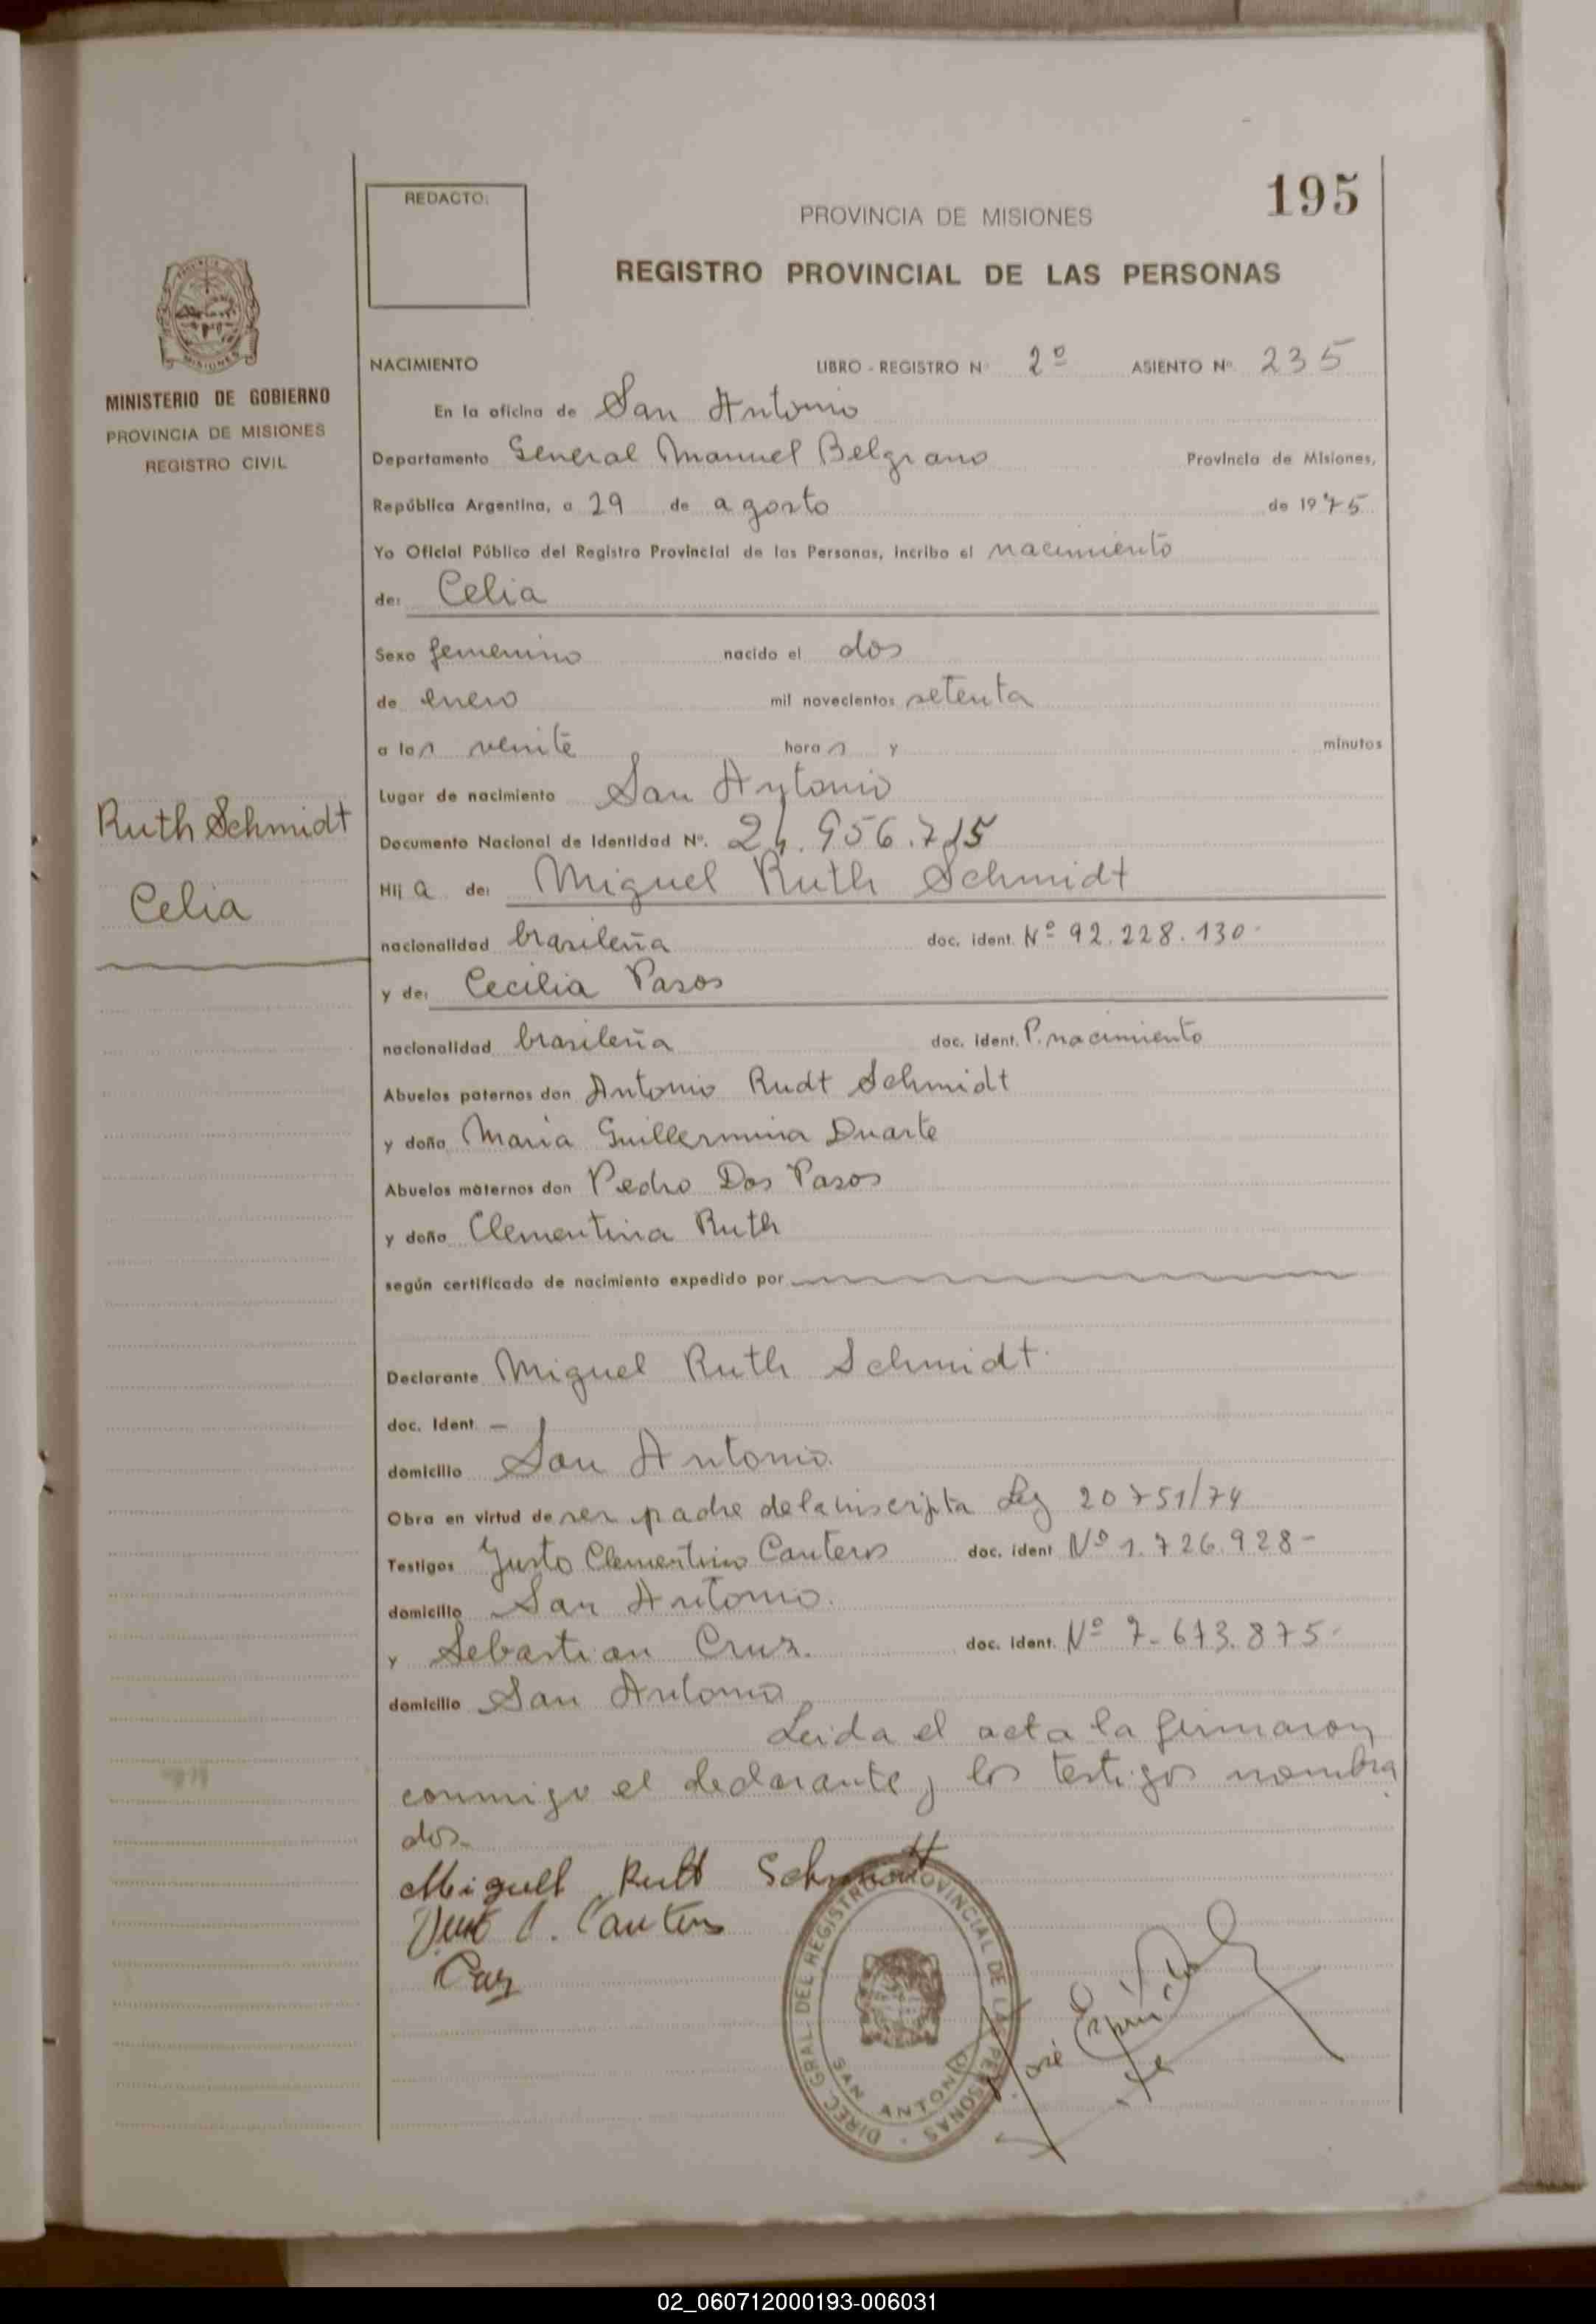 195
REDACTO:
PROVINCIA DE MISIONES
REGISTRO PROVINCIAL DE LAS PERSONAS
MINISTERIO DE GOBIERNO
PROVINCIA DE MISIONES
REGISTRO CIVIL
NACIMIENTO LIBRO - REGISTRO Nº 2º ASIENTO Nº 235
En la oficina de San Antonio
Departamento General Manuel Belgrano Provincia de Misiones,
República Argentina, a 29 de agosto de 1975
Yo Oficial Público del Registro Provincial de las Personas, incribo el nacimiento
de: Celia
Sexo femenino nacido el dos
de enero mil novecientos setenta
a las veinte horas y minutos
Lugar de nacimiento San Antonio
Ruth Schmidt
Celia
Documento Nacional de Identidad Nº. 24.956.715
Hija de: Miguel Ruth Schmidt
nacionalidad brasileña doc. ident. Nº 92.228.130
y de: Cecilia Pasos
nacionalidad brasileña doc. ident. P. nacimiento
Abuelos paternos don Antonio Rudt Schmidt
y doña Maria Guillermina Duarte
Abuelos maternos don Pedro Dos Pasos
y doña Clementina Ruth
según certificado de nacimiento expedido por
Declarante Miguel Ruth Schmidt
doc. Ident. —
domicilio San Antonio.
Obra en virtud de ser padre de la inscripta Ley 20751/74
Testigos Justo Clementino Cantero doc. ident Nº 1.726.928-
domicilio San Antonio.
y Sebastian Cruz. doc. ident. Nº 7.673.875-
domicilio San Antonio
Leida el acta la firmaron
conmigo el declarante y los testigos nombra
dos.
Miguell Rutt Schmitt
C. Cantero
DIREC. GRAL. DEL REGISTRO PROVINCIAL DE LAS PERSONAS
SAN ANTONIO
José
02_060712000193-006031